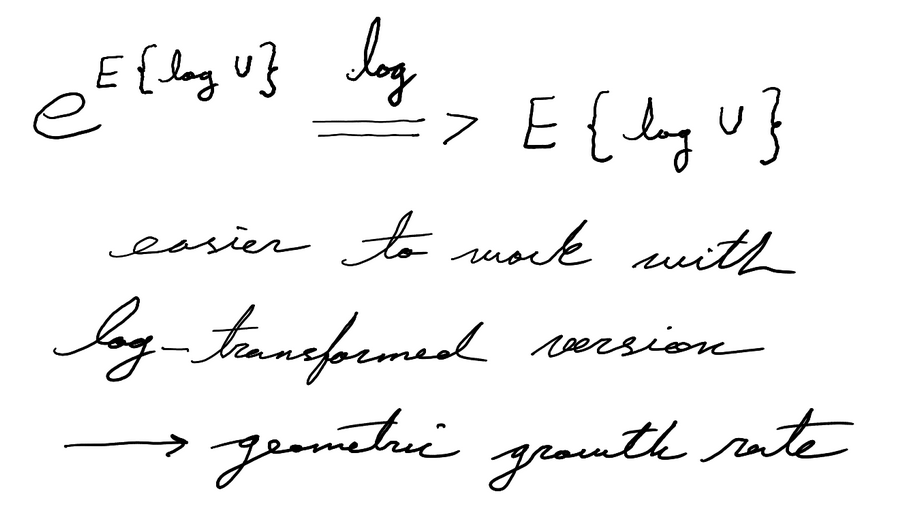 e^{E{log U}} log ==> E {log U}
easier to work with
log-transformed version
→ geometric growth rate